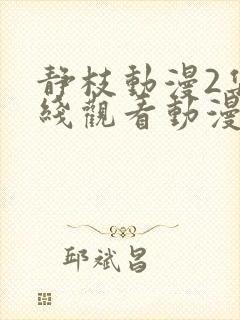 靜枝動漫2集
綫觀看動漫
邱斌昌